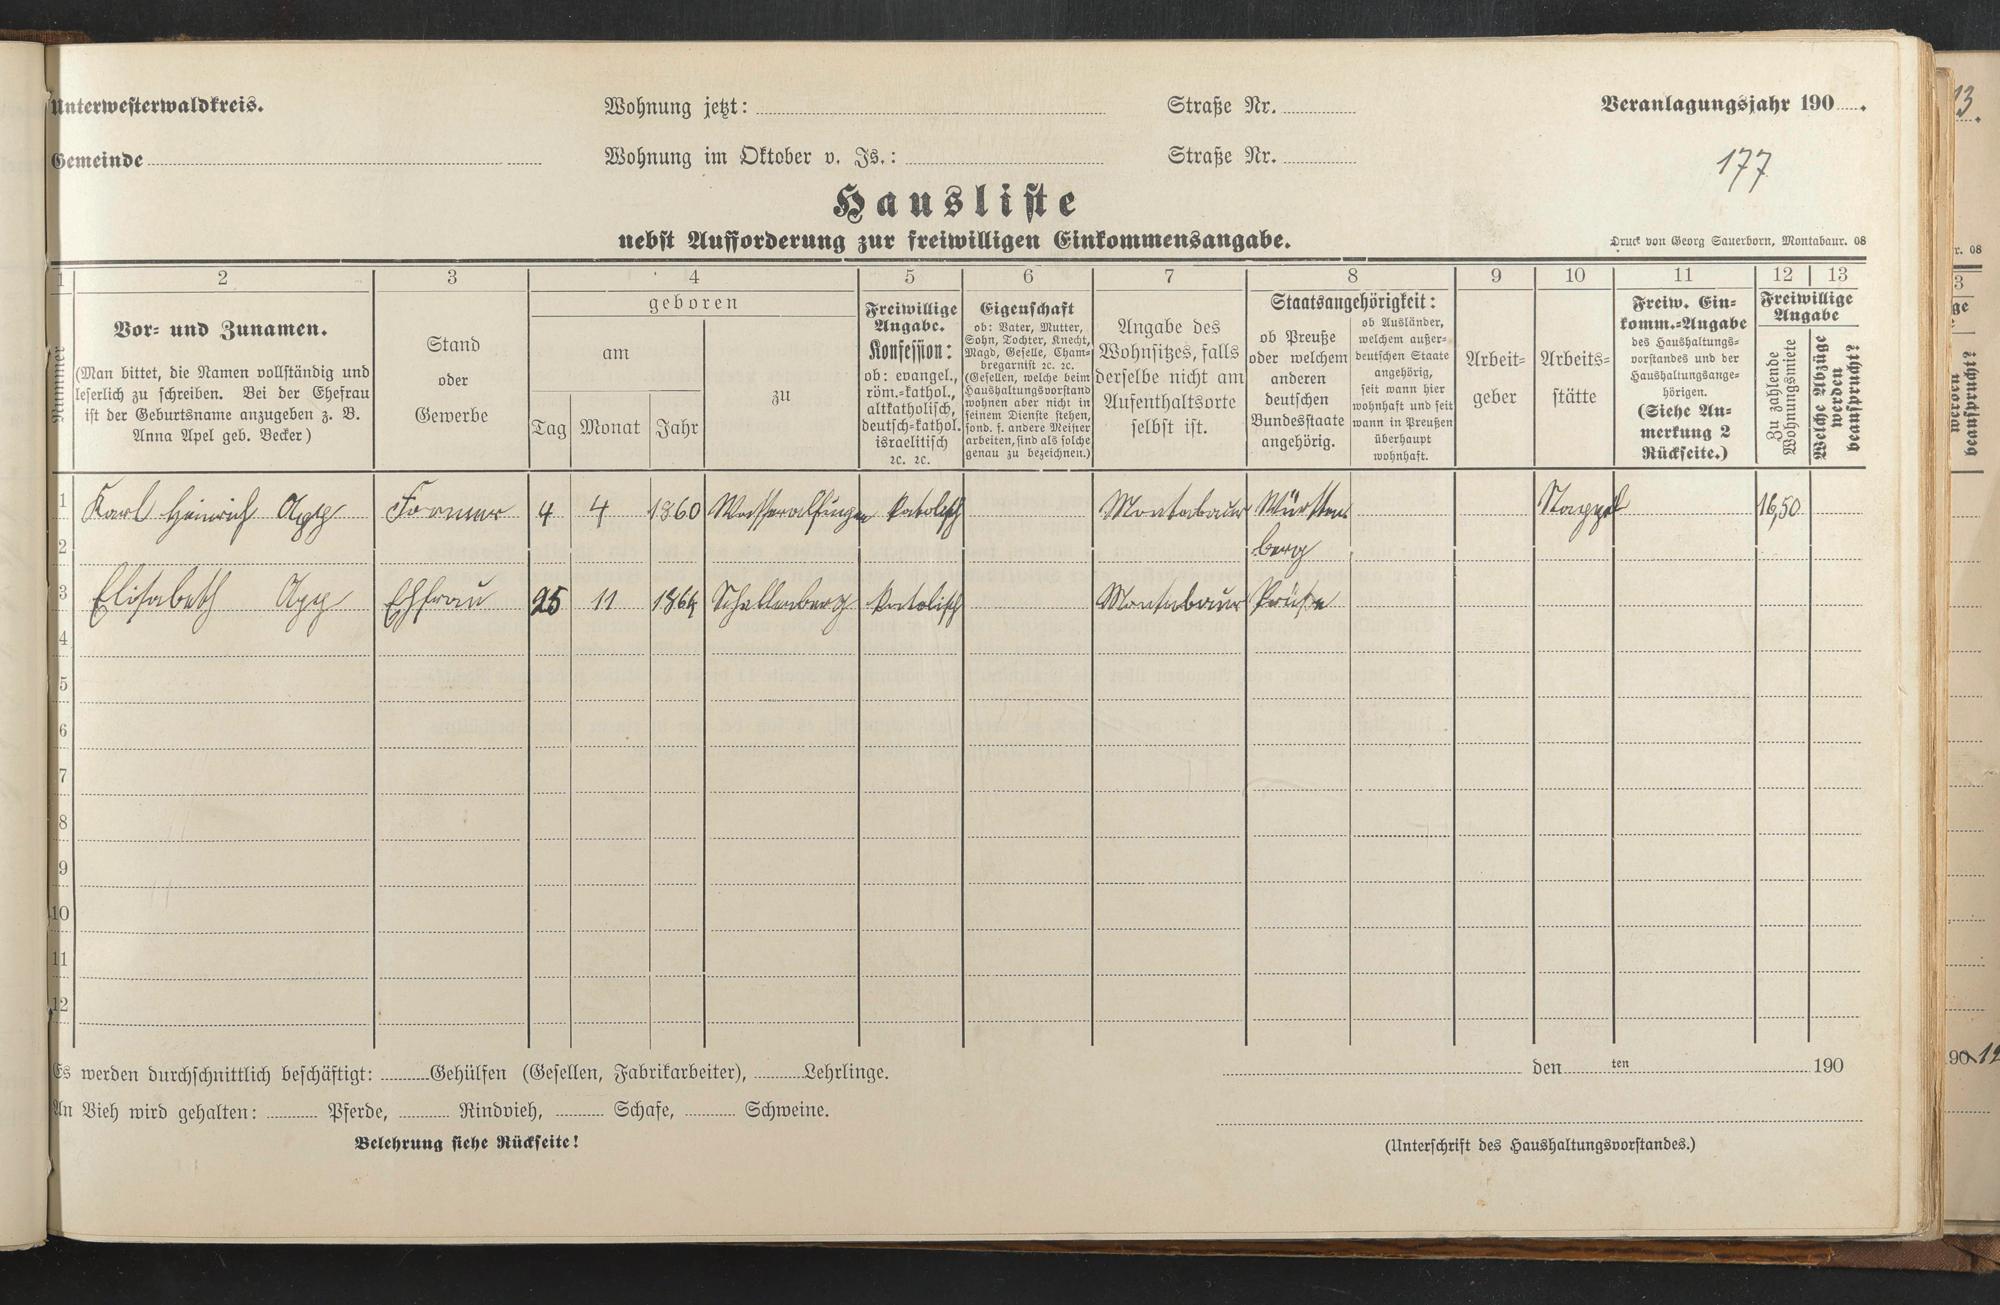 Unterwesterwaldkreis.
Wohnung jetzt: Straße Nr.
Veranlagungsjahr 190 .
Gemeinde
Wohnung im Oktober v. Js.: Straße Nr.
177
Hausliste
nebst Aufforderung zur freiwilligen Einkommensangabe.
Druck von Georg Sauerborn, Montabaur. 08
1 2 3 4 5 6 7 8 9 10 11 12 13
Nummer
Vor- und Zunamen.
(Man bittet, die Namen vollständig und
leserlich zu schreiben. Bei der Ehefrau
ist der Geburtsname anzugeben z. B.
Anna Apel geb. Becker)
Stand
oder
Gewerbe
geboren
am
zu
Tag Monat Jahr
Freiwillige
Angabe.
Konfession:
ob: evangel.,
röm.-kathol.,
altkatholisch,
deutsch-kathol.
israelitisch
ꝛc. ꝛc.
Eigenschaft
ob: Vater, Mutter,
Sohn, Tochter, Knecht,
Magd, Geselle, Cham-
bregarnist ꝛc. ꝛc.
(Gesellen, welche beim
Haushaltungsvorstand
wohnen aber nicht in
seinem Dienste stehen,
sond. f. andere Meister
arbeiten, sind als solche
genau zu bezeichnen.)
Angabe des
Wohnsitzes, falls
derselbe nicht am
Aufenthaltsorte
selbst ist.
Staatsangehörigkeit:
ob Preuße
oder welchem
anderen
deutschen
Bundesstaate
angehörig.
ob Ausländer,
welchem außer-
deutschen Staate
angehörig,
seit wann hier
wohnhaft und seit
wann in Preußen
überhaupt
wohnhaft.
Arbeit-
geber
Arbeits-
stätte
Freiw. Ein-
komm.-Angabe
des Haushaltungs-
vorstandes und der
Haushaltungsange-
hörigen.
(Siehe An-
merkung 2
Rückseite.)
Freiwillige
Angabe
Zu zahlende
Wohnungsmiete
Welche Abzüge
werden
beansprucht?
1 Karl Heinrich App Former 4 4 1860 Wasseralfingen katolisch Montabaur Württem Stappel 16,50
2 berg
3 Elisabeth App Ehfrau 25 11 1864 Schellenberg katolisch Montabaur Prüße
4
5
6
7
8
9
10
11
12
Es werden durchschnittlich beschäftigt: Gehülfen (Gesellen, Fabrikarbeiter), Lehrlinge.
den ten 190
An Vieh wird gehalten: Pferde, Rindvieh, Schafe, Schweine.
Belehrung siehe Rückseite!
(Unterschrift des Haushaltungsvorstandes.)